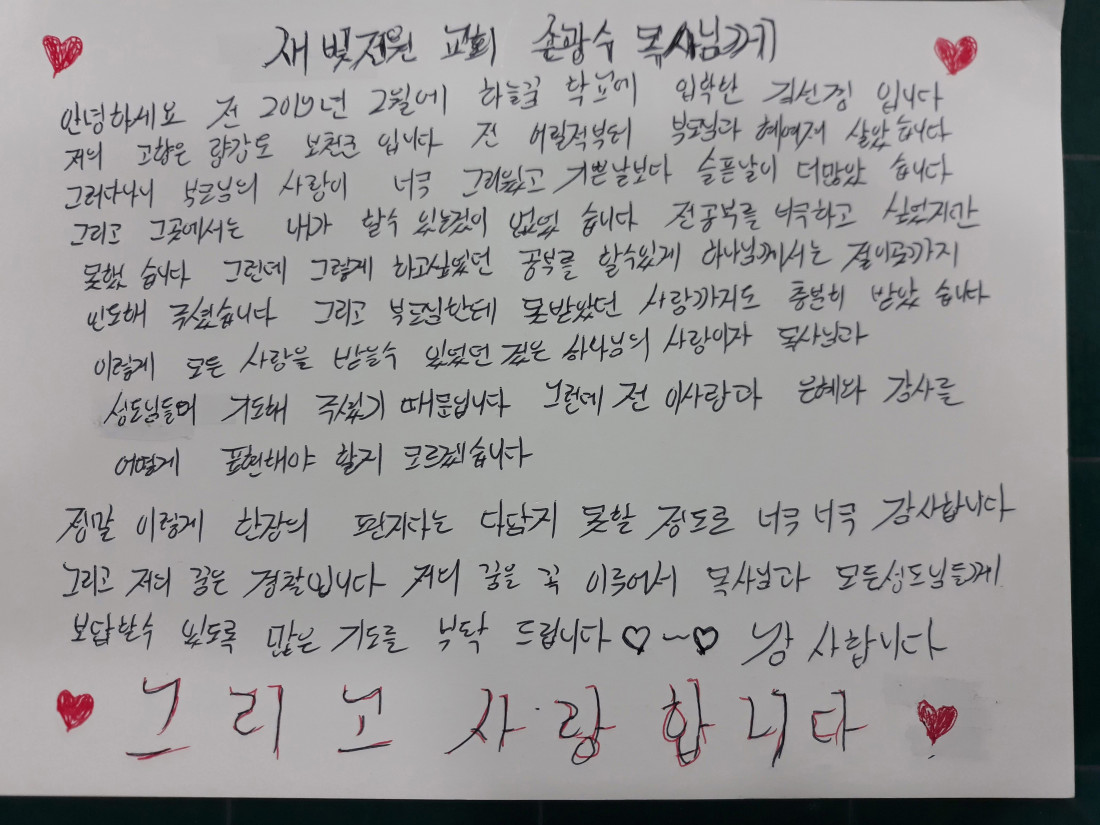 새빛전원 교회 손광수 목사님께
안녕하세요 전 2019년 2월에 하늘꿈 학교에 입학한 김선경 입니다
저의 고향은 량강도 보천군 입니다 전 어릴적부터 부모님과 헤여져 살았습니다
그러다나니 부모님의 사랑이 너무 그리웠고 기쁜날보다 슬픈날이 더많았 습니다
그리고 그곳에서는 내가 할수 있는것이 없었 습니다 전공부를 너무하고 싶었지만
못했 습니다 그런데 그렇게 하고싶었던 공부를 할수있게 하나님께서는 절이곳까지
인도해 주셨습니다 그리고 부모님한테 못받았던 사랑까지도 충분히 받았 습니다
이렇게 모든 사랑을 받을수 있었던 것은 하나님의 사랑이자 목사님과
성도님들의 기도해 주셨기 때문입니다 그런데 전 이사랑과 은혜와 감사를
어떻게 표현해야 할지 모르겠습니다
정말 이렇게 한장의 편지다는 다담지 못할 정도로 너무 너무 감사합니다
그리고 저의 꿈은 경찰입니다 저의 꿈을 꼭 이루어서 목사님과 모든성도님들께
보답할수 있도록 많은 기도를 부탁 드립니다♡~♡ 감사합니다
그리고 사랑합니다